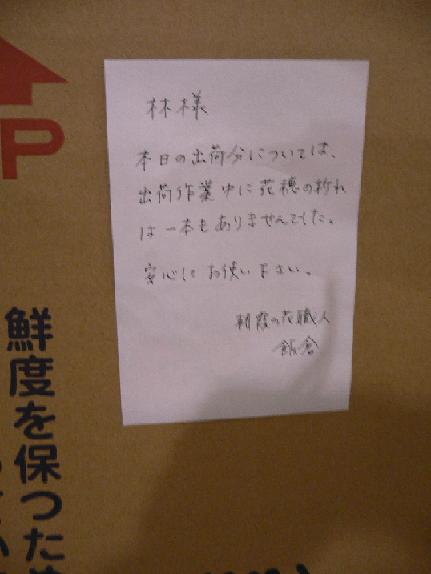 林様
本日の出荷分については、
出荷作業中に花穂の折れ
は一本もありませんでした。
安心してお使い下さい。
朝霞の花職人
飯倉
P
鮮度を保つた